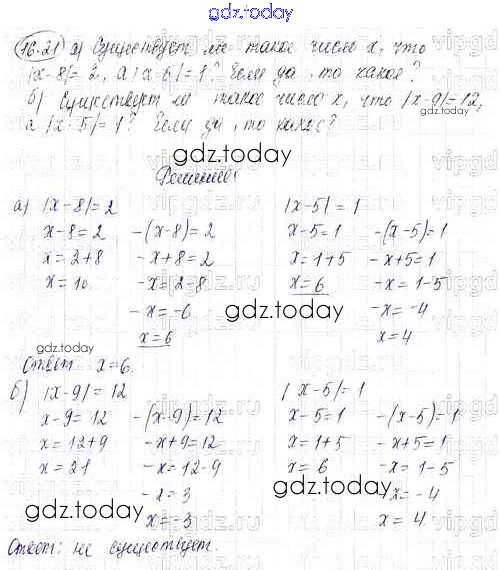 gdz.today
16.21 а) Существует ли такое число x, что
|x-8|=2, а |x-5|=1? Если да, то какое?
б) Существует ли такое число x, что |x-9|=12,
а |x-5|=1? Если да, то какое?
gdz.today
gdz.today
Решение:
а) |x-8|=2
x-8=2 -(x-8)=2
x=2+8 -x+8=2
x=10 -x=2-8
-x=-6
x=6
|x-5|=1
x-5=1 -(x-5)=1
x=1+5 -x+5=1
x=6 -x=1-5
-x=-4
x=4
gdz.today
gdz.today
Ответ x=6.
б) |x-9|=12
x-9=12 -(x-9)=12
x=12+9 -x+9=12
x=21 -x=12-9
-x=3
x=-3
|x-5|=1
x-5=1 -(x-5)=1
x=1+5 -x+5=1
x=6 -x=1-5
-x=-4
x=4
gdz.today
gdz.today
Ответ: не существует.